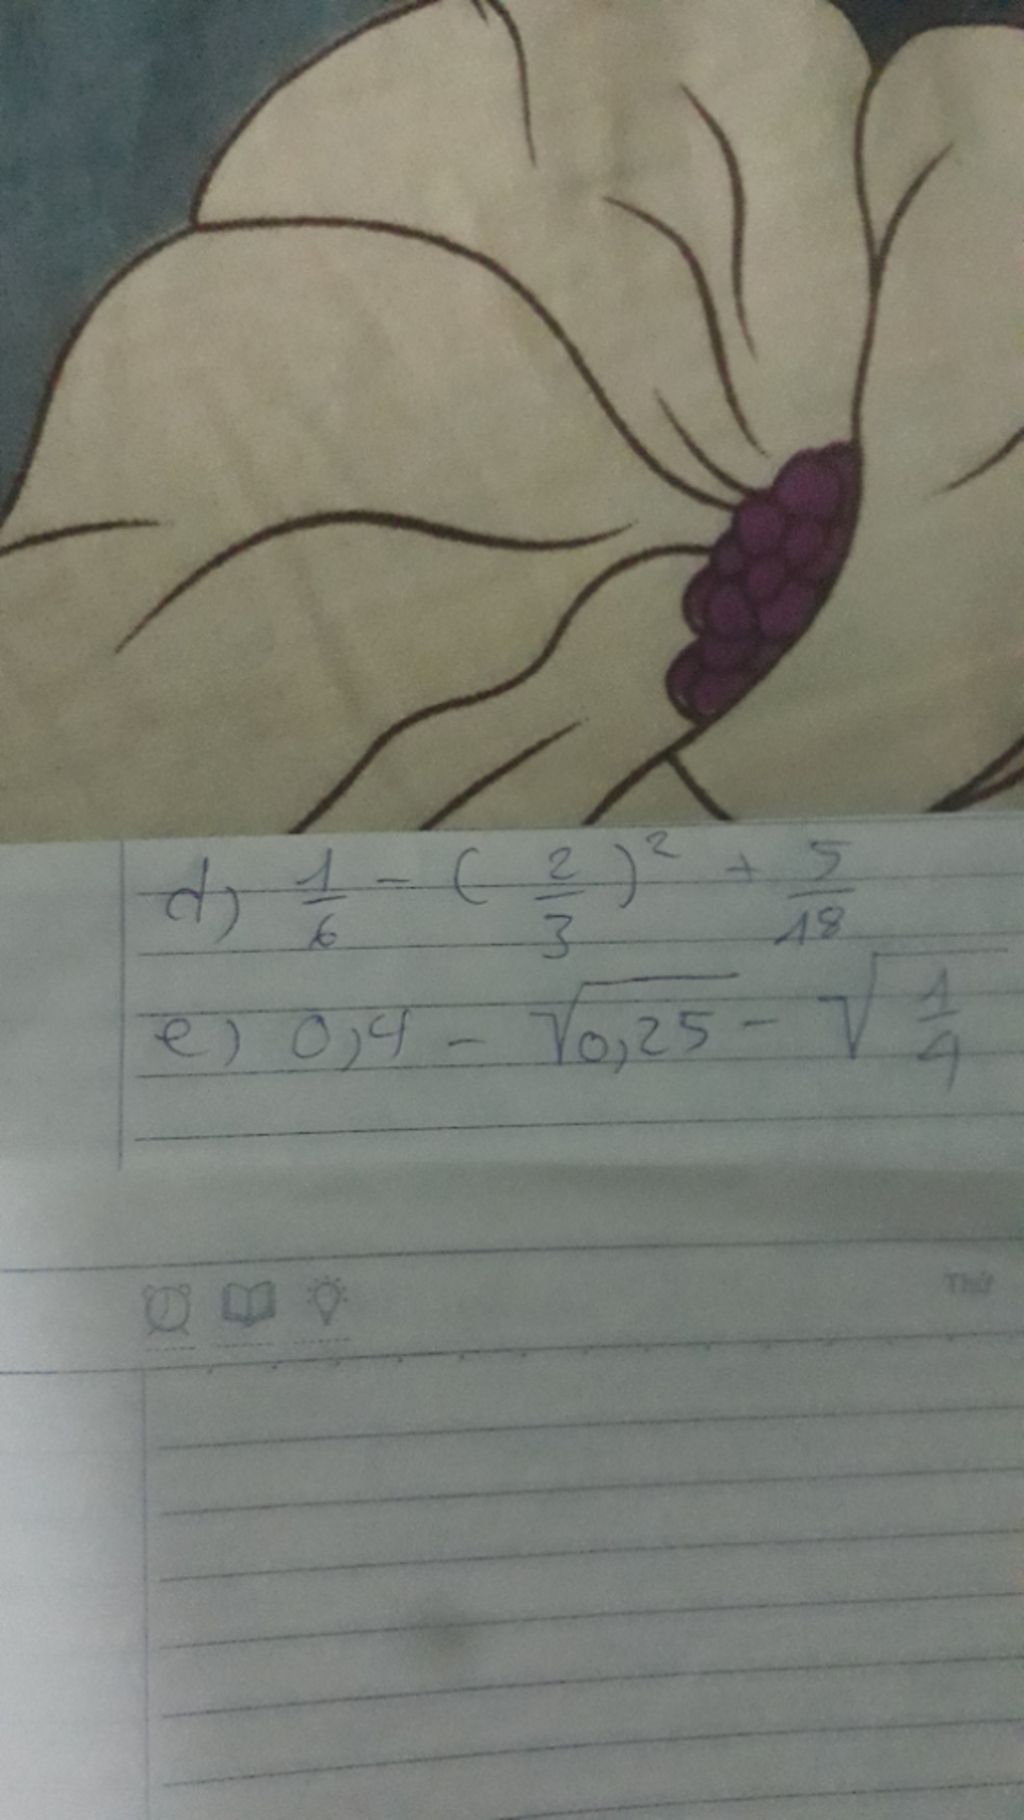 d) 1/6 - (2/3)² + 5/18
e) 0,4 - √0,25 - √1/4
Thứ